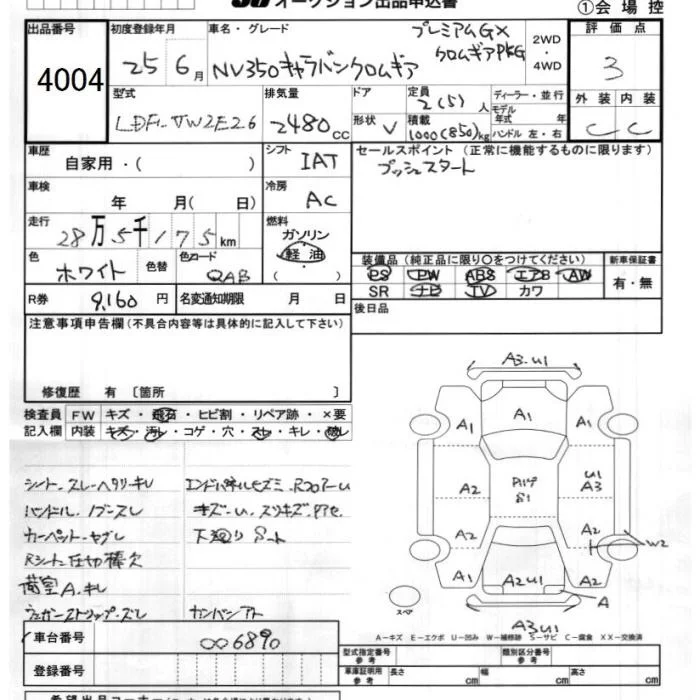 オークション出品申込書
①会場控
出品番号 4004
初度登録年月 25 6月
車名・グレード NV350キャラバンクロムギア
プレミアムGX
クロムギアPKG
2WD・4WD
評価点 3
外装 内装
C C
型式 LDF-VW2E26
排気量 2480cc
ドア形状 V
定員 2(5)人
積載 1000(850)kg
ディーラー・並行
モデル年式 年
ハンドル 左・右
車歴 自家用・( )
シフト IAT
セールスポイント(正常に機能するものに限ります)
プッシュスタート
車検 年 月( 日)
冷房 AC
走行 28万5千175km
燃料 ガソリン
軽油
( )
色 ホワイト 色替
色コード QAB
装備品(純正品に限り○をつけてください)
新車保証書
PS PW ABS エアB AW
有・無
SR ナビ TV カワ
R券 9,160円
名変通知期限 月 日
後日品
注意事項申告欄(不具合内容等は具体的に記入して下さい)
修復歴 有 〔箇所 〕
検査員記入欄
FW キズ・飛石・ヒビ割・リペア跡・×要
内装 キズ・汚レ・コゲ・穴・スレ・キレ・破レ
シート・スレ・ヘタリ・キレ
エンドパネルキズミ
ハンドル、ノブ・スレ
キズ・U、スリキズ
カーペット・ヤブレ
下廻りサート
Rシート仕切棒欠
荷室A・キレ
ウェザーストリップ・ズレ
カンバンアト
A3・U1
A1
A1
A1
A2
U1
A3
A2
A2
W2
A1
A2U1
A2
A
スペア
A3U1
A―キズ E―エクボ U―凹み W―補修跡 S―サビ C―腐食 XX―交換済
車台番号 006890
登録番号
型式指定番号 参考
類別区分番号 参考
車庫証明用 参考 長さ cm 幅 cm 高さ cm